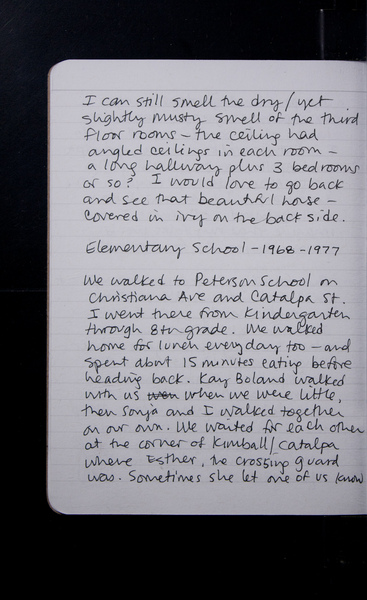 I can still smell the dry/yet
slightly musty smell of the third
floor rooms - the ceiling had
angled ceilings in each room -
a long hallway plus 3 bedrooms
or so? I would love to go back
and see that beautiful house -
covered in ivy on the back side.
Elementary School - 1968-1977
We walked to Peterson School on
Christiana Ave and Catalpa St.
I went there from Kindergarten
through 8th grade. We walked
home for lunch everyday too - and
spent about 15 minutes eating before
heading back. Kay Boland walked
with us when we were little,
then Sonja and I walked together
on our own. We waited for each other
at the corner of Kimball/Catalpa
where Esther, the crossing guard
was. Sometimes she let one of us know